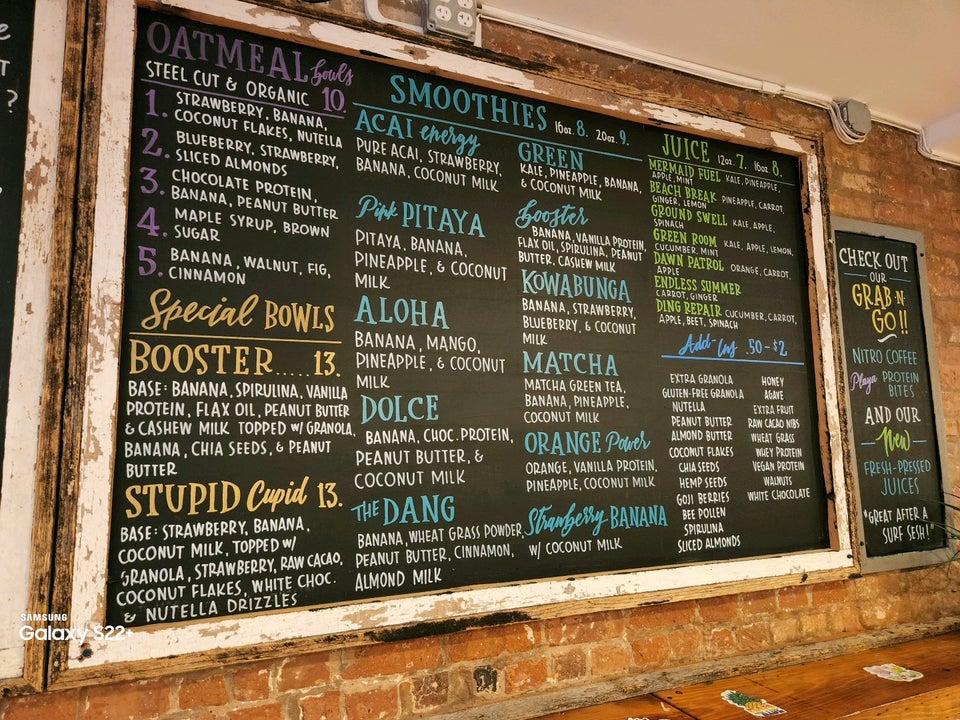 T
?
OATMEAL bowls
STEEL CUT & ORGANIC 10.
1. STRAWBERRY, BANANA,
COCONUT FLAKES, NUTELLA
2. BLUEBERRY, STRAWBERRY,
SLICED ALMONDS
3. CHOCOLATE PROTEIN,
BANANA, PEANUT BUTTER
4. MAPLE SYRUP, BROWN
SUGAR
5. BANANA, WALNUT, FIG,
CINNAMON
Special BOWLS
BOOSTER.....13.
BASE: BANANA, SPIRULINA, VANILLA
PROTEIN, FLAX OIL, PEANUT BUTTER
& CASHEW MILK TOPPED W/ GRANOLA,
BANANA, CHIA SEEDS, & PEANUT
BUTTER
STUPID Cupid 13.
BASE: STRAWBERRY, BANANA,
COCONUT MILK, TOPPED W/
GRANOLA, STRAWBERRY, RAW CACAO,
COCONUT FLAKES, WHITE CHOC.
& NUTELLA DRIZZLES
SMOOTHIES 16oz. 8. 20oz. 9.
ACAI energy
PURE ACAI, STRAWBERRY,
BANANA, COCONUT MILK
Pink PITAYA
PITAYA, BANANA,
PINEAPPLE, & COCONUT
MILK
ALOHA
BANANA, MANGO,
PINEAPPLE, & COCONUT
MILK
DOLCE
BANANA, CHOC. PROTEIN,
PEANUT BUTTER, &
COCONUT MILK
THE DANG
BANANA, WHEAT GRASS POWDER,
PEANUT BUTTER, CINNAMON,
ALMOND MILK
GREEN
KALE, PINEAPPLE, BANANA,
& COCONUT MILK
booster
BANANA, VANILLA PROTEIN,
FLAX OIL, SPIRULINA, PEANUT
BUTTER, CASHEW MILK
KOWABUNGA
BANANA, STRAWBERRY,
BLUEBERRY, & COCONUT
MILK
MATCHA
MATCHA GREEN TEA,
BANANA, PINEAPPLE,
COCONUT MILK
ORANGE Power
ORANGE, VANILLA PROTEIN,
PINEAPPLE, COCONUT MILK
Strawberry BANANA
W/ COCONUT MILK
JUICE 12oz. 7. 16oz. 8.
MERMAID FUEL KALE, PINEAPPLE,
APPLE, MINT
BEACH BREAK PINEAPPLE, CARROT,
GINGER, LEMON
GROUND SWELL KALE, APPLE,
SPINACH
GREEN ROOM KALE, APPLE, LEMON,
CUCUMBER, MINT
DAWN PATROL ORANGE, CARROT,
APPLE
ENDLESS SUMMER
CARROT, GINGER
DING REPAIR CUCUMBER, CARROT,
APPLE, BEET, SPINACH
Add-Ins .50-$2
EXTRA GRANOLA
GLUTEN-FREE GRANOLA
NUTELLA
PEANUT BUTTER
ALMOND BUTTER
COCONUT FLAKES
CHIA SEEDS
HEMP SEEDS
GOJI BERRIES
BEE POLLEN
SPIRULINA
SLICED ALMONDS
HONEY
AGAVE
EXTRA FRUIT
RAW CACAO NIBS
WHEAT GRASS
WHEY PROTEIN
VEGAN PROTEIN
WALNUTS
WHITE CHOCOLATE
CHECK OUT
OUR
GRAB-N-
GO!!
NITRO COFFEE
Playa PROTEIN
BITES
AND OUR
New
FRESH-PRESSED
JUICES
*GREAT AFTER A
SURF SESH!*
SAMSUNG
Galaxy S22+